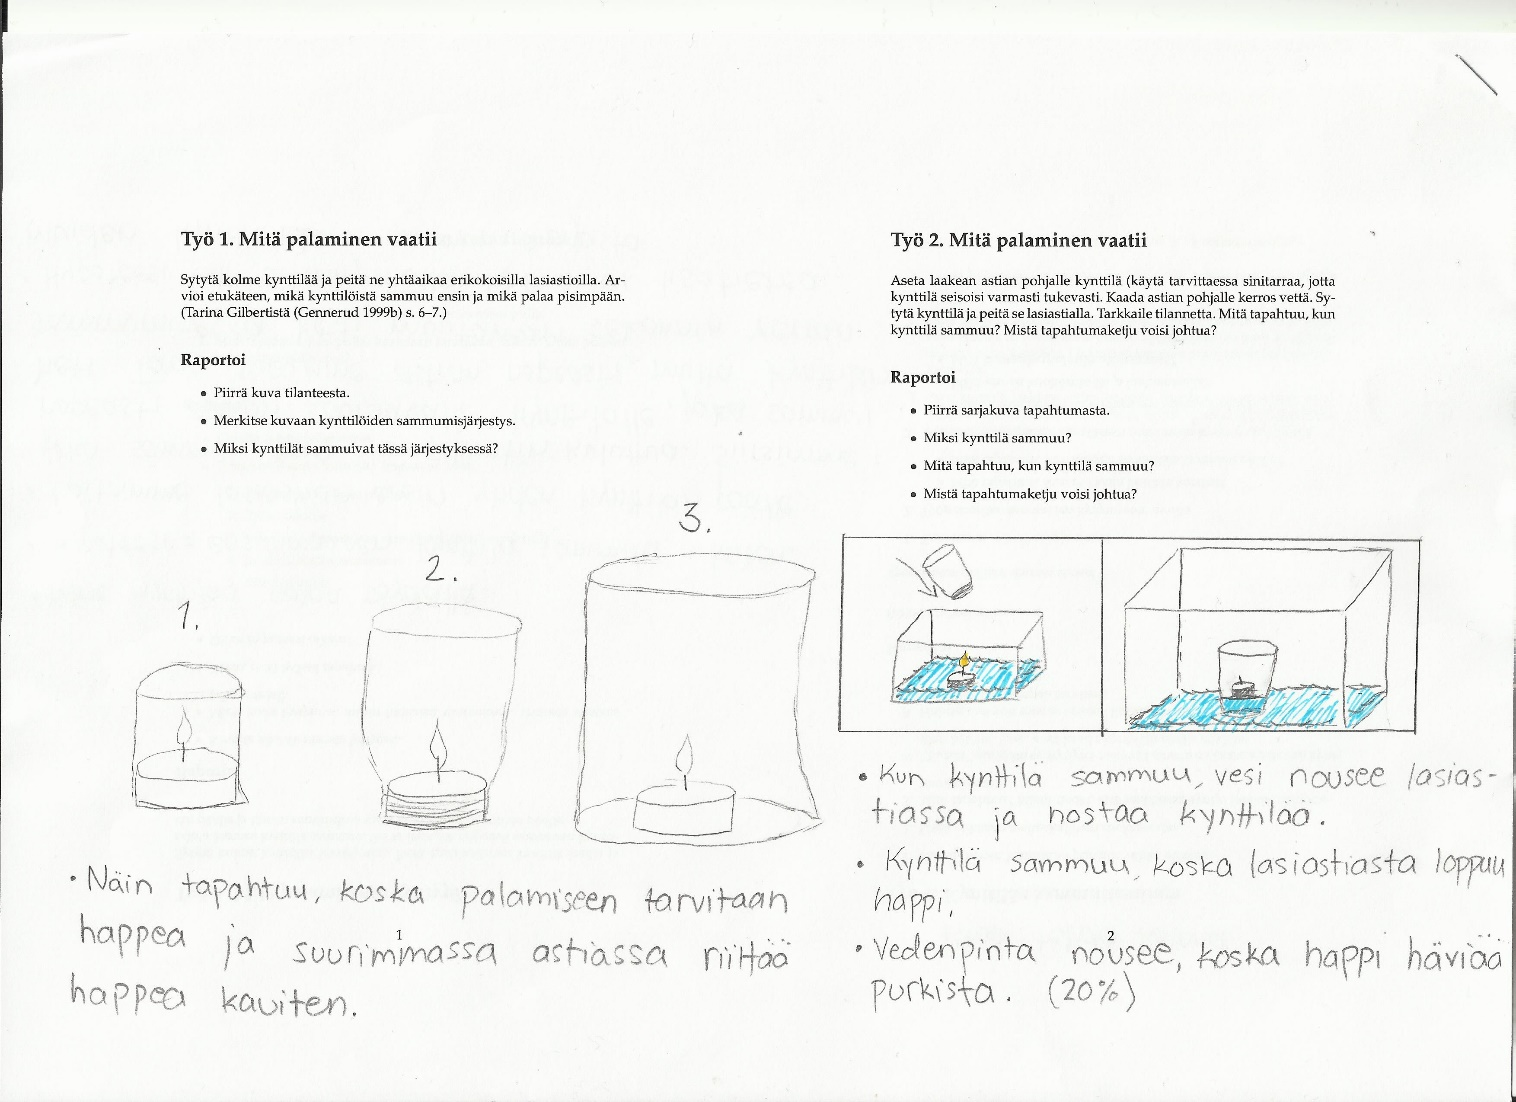 Työ 1. Mitä palaminen vaatii
Sytytä kolme kynttilää ja peitä ne yhtäaikaa erikokoisilla lasiastioilla. Ar-
vioi etukäteen, mikä kynttilöistä sammuu ensin ja mikä palaa pisimpään.
(Tarina Gilbertistä (Gennerud 1999b) s. 6–7.)
Raportoi
• Piirrä kuva tilanteesta.
• Merkitse kuvaan kynttilöiden sammumisjärjestys.
• Miksi kynttilät sammuivat tässä järjestyksessä?
1.
2.
3.
• Näin tapahtuu, koska palamiseen tarvitaan
happea ja suurimmassa astiassa riittää
happea kauiten.
1
Työ 2. Mitä palaminen vaatii
Aseta laakean astian pohjalle kynttilä (käytä tarvittaessa sinitarraa, jotta
kynttilä seisoisi varmasti tukevasti. Kaada astian pohjalle kerros vettä. Sy-
tytä kynttilä ja peitä se lasiastialla. Tarkkaile tilannetta. Mitä tapahtuu, kun
kynttilä sammuu? Mistä tapahtumaketju voisi johtua?
Raportoi
• Piirrä sarjakuva tapahtumasta.
• Miksi kynttilä sammuu?
• Mitä tapahtuu, kun kynttilä sammuu?
• Mistä tapahtumaketju voisi johtua?
• Kun kynttilä sammuu, vesi nousee lasias-
tiassa ja nostaa kynttilää.
• Kynttilä sammuu, koska lasiastiasta loppuu
happi.
• Vedenpinta nousee, koska happi häviää
purkista. (20%)
2